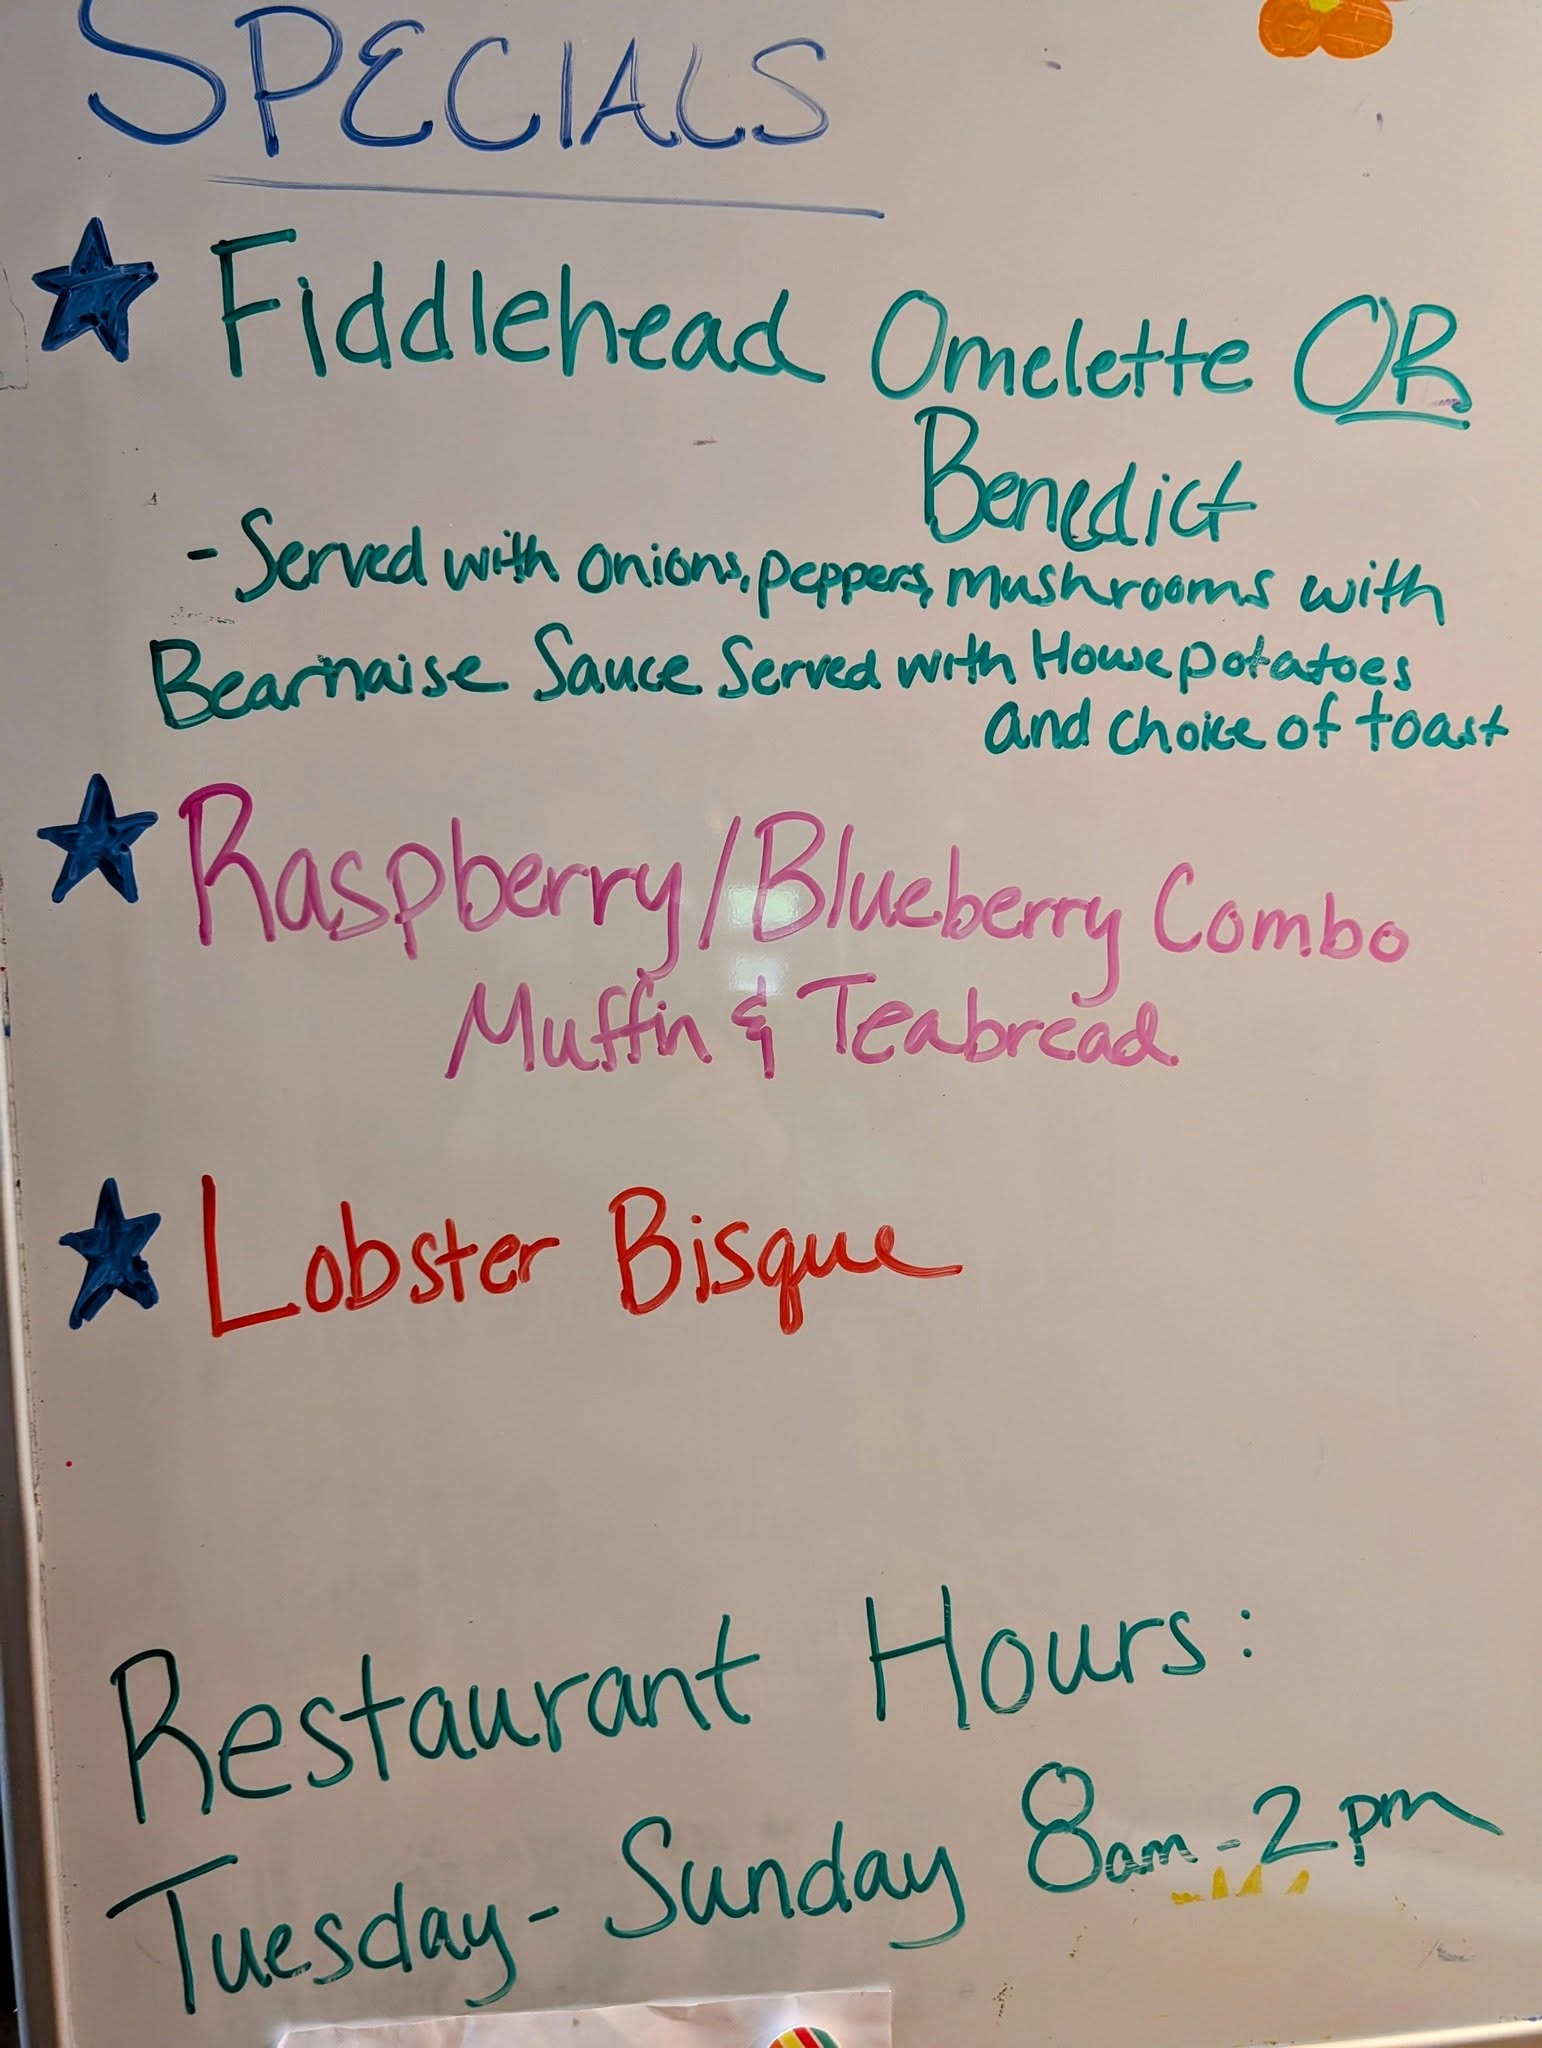 SPECIALS
Fiddlehead Omelette OR
Benedict
- Served with onions, peppers, mushrooms with
Bearnaise Sauce Served with House potatoes
and choice of toast
Raspberry/Blueberry Combo
Muffin & Teabread
Lobster Bisque
Restaurant Hours:
Tuesday - Sunday 8am - 2pm